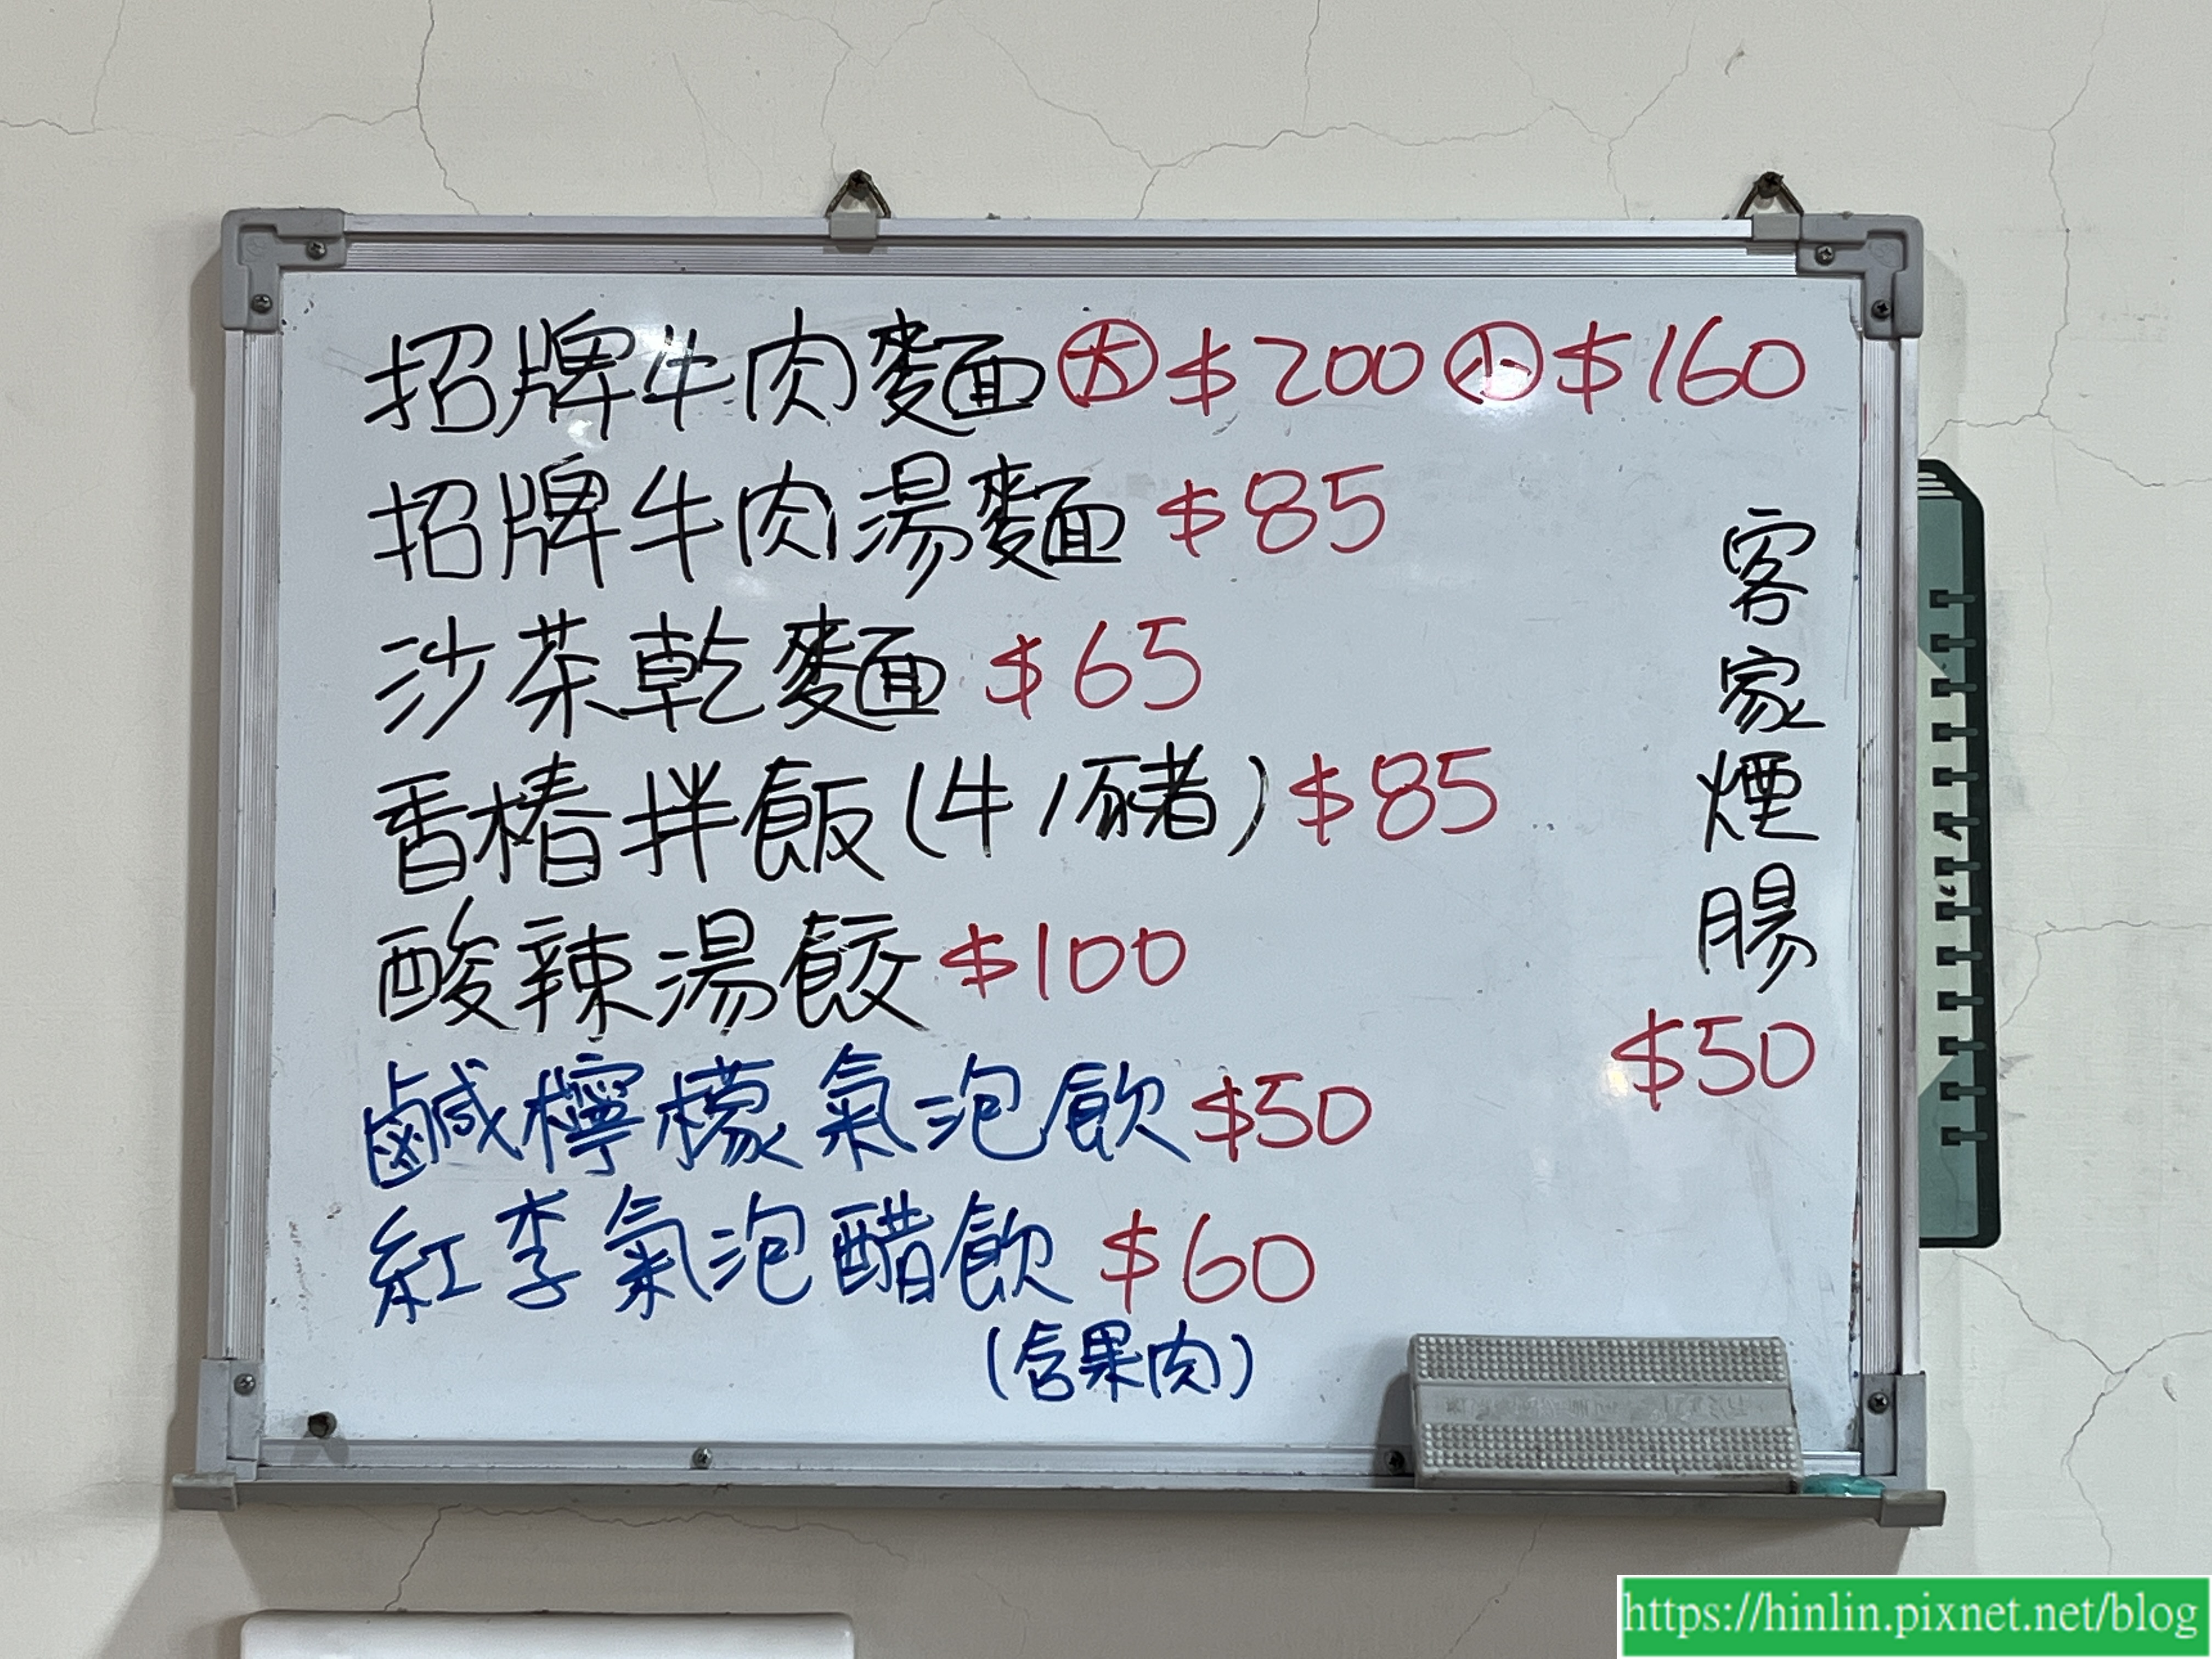 招牌牛肉麵㊛大$200㊛小$160
招牌牛肉湯麵 $85
沙茶乾麵 $65
香椿拌飯(牛/豬) $85
酸辣湯餃 $100
鹹檸檬氣泡飲 $50
紅李氣泡醋飲 $60
(含果肉)
客家煙腸
$50
https://hinlin.pixnet.net/blog